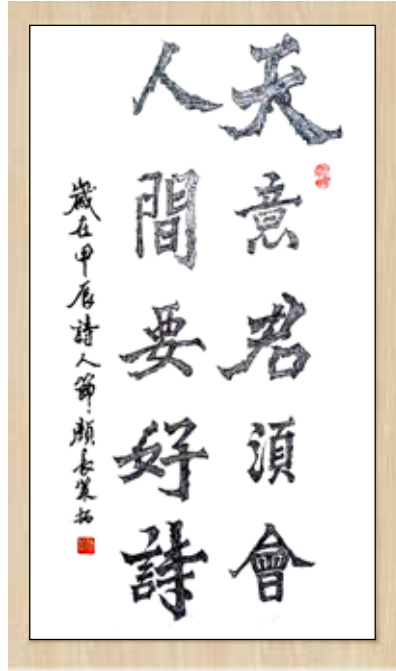 天意君須會
人間要好詩
歲在甲辰詩人節顧長策拓